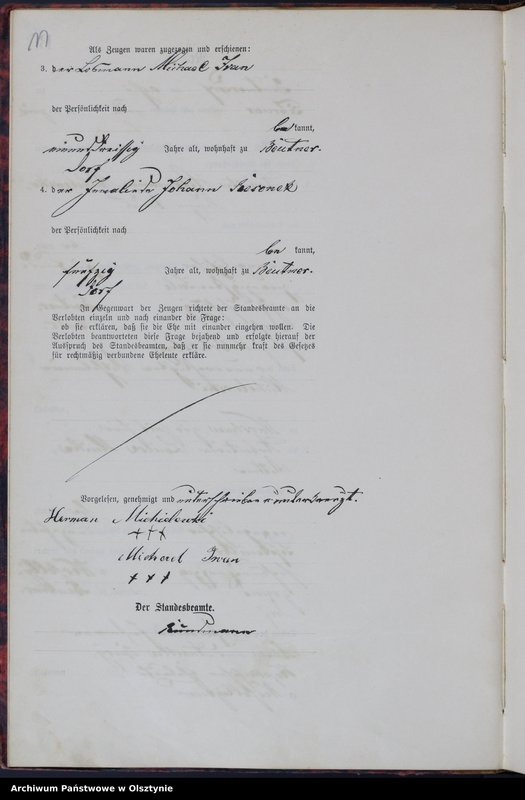 Als Zeugen waren zugezogen und erschienen:
3. der Losmann Michael Iwan
der Persönlichkeit nach
be kannt,
einunddreissig Jahre alt, wohnhaft zu Beutner-
dorf
4. der Invalide Johann
der Persönlichkeit nach
be kannt,
fünfzig Jahre alt, wohnhaft zu Beutner-
dorf
In Gegenwart der Zeugen richtete der Standesbeamte an die
Verlobten einzeln und nach einander die Frage:
ob sie erklären, daß sie die Ehe mit einander eingehen wollen. Die
Verlobten beantworteten diese Frage bejahend und erfolgte hierauf der
Ausspruch des Standesbeamten, daß er sie nunmehr kraft des Gesetzes
für rechtmäßig verbundene Eheleute erkläre.
Vorgelesen, genehmigt und unterschrieben u. unterkreuzt.
Herman
+++
Michael Iwan
+++
Der Standesbeamte.
Archiwum Państwowe w Olsztynie